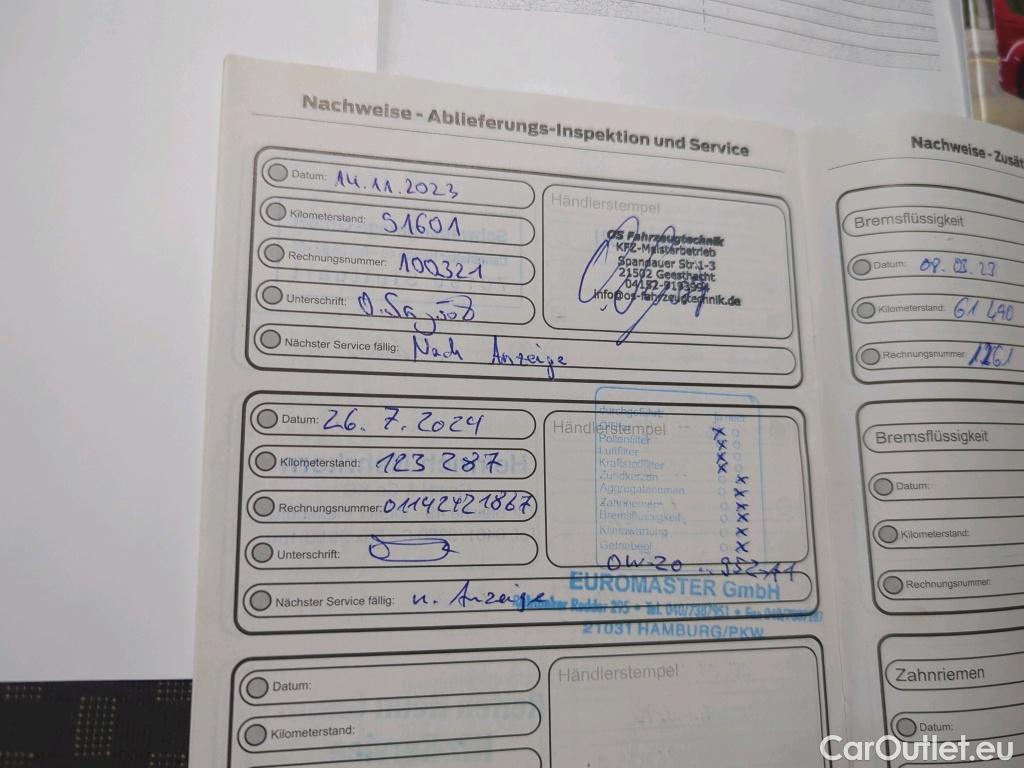 Nachweise - Ablieferungs-Inspektion und Service
Datum: 14.11.2023
Kilometerstand: 91601
Rechnungsnummer: 100321
Unterschrift:
Nächster Service fällig: Nach Anzeige
Händlerstempel
OS Fahrzeugtechnik
KFZ-Meisterbetrieb
Spandauer Str.1-3
21502 Geesthacht
04152-9193994
info@os-fahrzeugtechnik.de
Datum: 26.7.2024
Kilometerstand: 123 287
Rechnungsnummer: 01142421867
Unterschrift:
Nächster Service fällig: n. Anzeige
Händlerstempel
durchgeführt
Ölfilter
Pollenfilter
Luftfilter
Kraftstofffilter
Zündkerzen
Aggregateriemen
Zahnriemen
Bremsflüssigkeit
Klimawartung
Getriebeöl
0W-20 952-A1
EUROMASTER GmbH
Redder 295 • Tel. 040/7387951 • Fax
21031 HAMBURG/PKW
Datum:
Kilometerstand:
Händlerstempel
Nachweise - Zusät
Bremsflüssigkeit
Datum: 08.03.23
Kilometerstand: 61 490
Rechnungsnummer: 1261
Bremsflüssigkeit
Datum:
Kilometerstand:
Rechnungsnummer:
Zahnriemen
Datum:
CarOutlet.eu